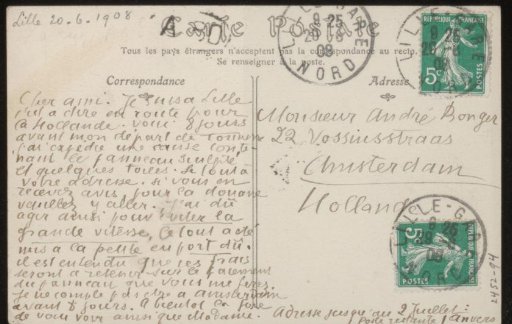 Lille 20-6-1908
Carte Postale
Tous les pays étrangers n'acceptent pas la correspondance au recto.
Se renseigner à la poste.
Correspondance
Adresse
Cher ami. Je suis à Lille
c'est à dire en route pour
la Hollande. Voici 8 jours
avant mon départ de Tonnerre
j'ai expédié une caisse conte-
nant le panneau sculpté
et quelques toiles. Le tout à
votre adresse. Si vous en
recevez avis pour la douane
veuillez y aller. J'ai dû
agir ainsi pour éviter la
grande vitesse. Le tout a été
mis à la petite en port dû.
il est entendu que ces frais
seront à retenir sur le paiement
du panneau que vous me ferez.
Je ne compte pas être à Amsterdam
avant 8 jours. A bientôt la joie
de vous voir ainsi que Madame.
Monsieur André Bonger
22 Vossiusstraas
Amsterdam
Hollande
Adresse jusqu'au 2 Juillet:
Poste restante Anvers
REPUBLIQUE FRANÇAISE
5c
POSTES
LILLE-GARE
9-25
20-6
08
NORD
5c
POSTES
LILLE-GARE
9-25
08
2452-94